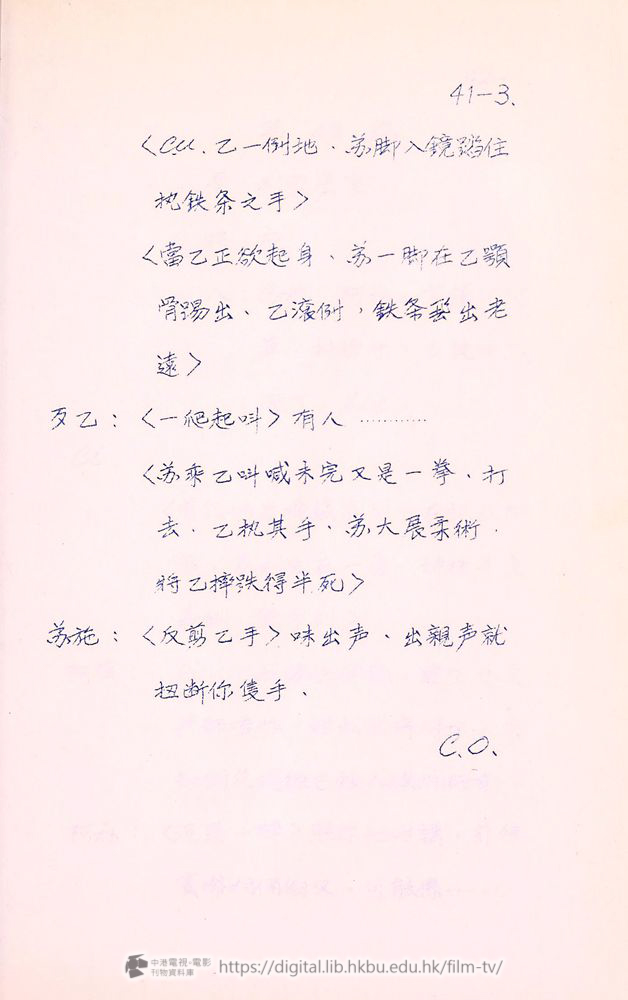 41-3.
〈C.U. 乙一倒地、苏脚入鏡踏住
执鉄条之手〉
〈當乙正欲起身、苏一脚在乙顎
骨踢出、乙滚倒，鉄条飛出老
遠〉
歹乙：〈一爬起叫〉有人…………
〈苏乘乙叫喊未完又是一拳、打
去、乙执其手、苏大展柔術、
将乙摔跌得半死〉
苏施：〈反剪乙手〉咪出声、出親声就
扭断你隻手、
C.O.
中港電視·電影
刊物資料庫
https://digital.lib.hkbu.edu.hk/film-tv/